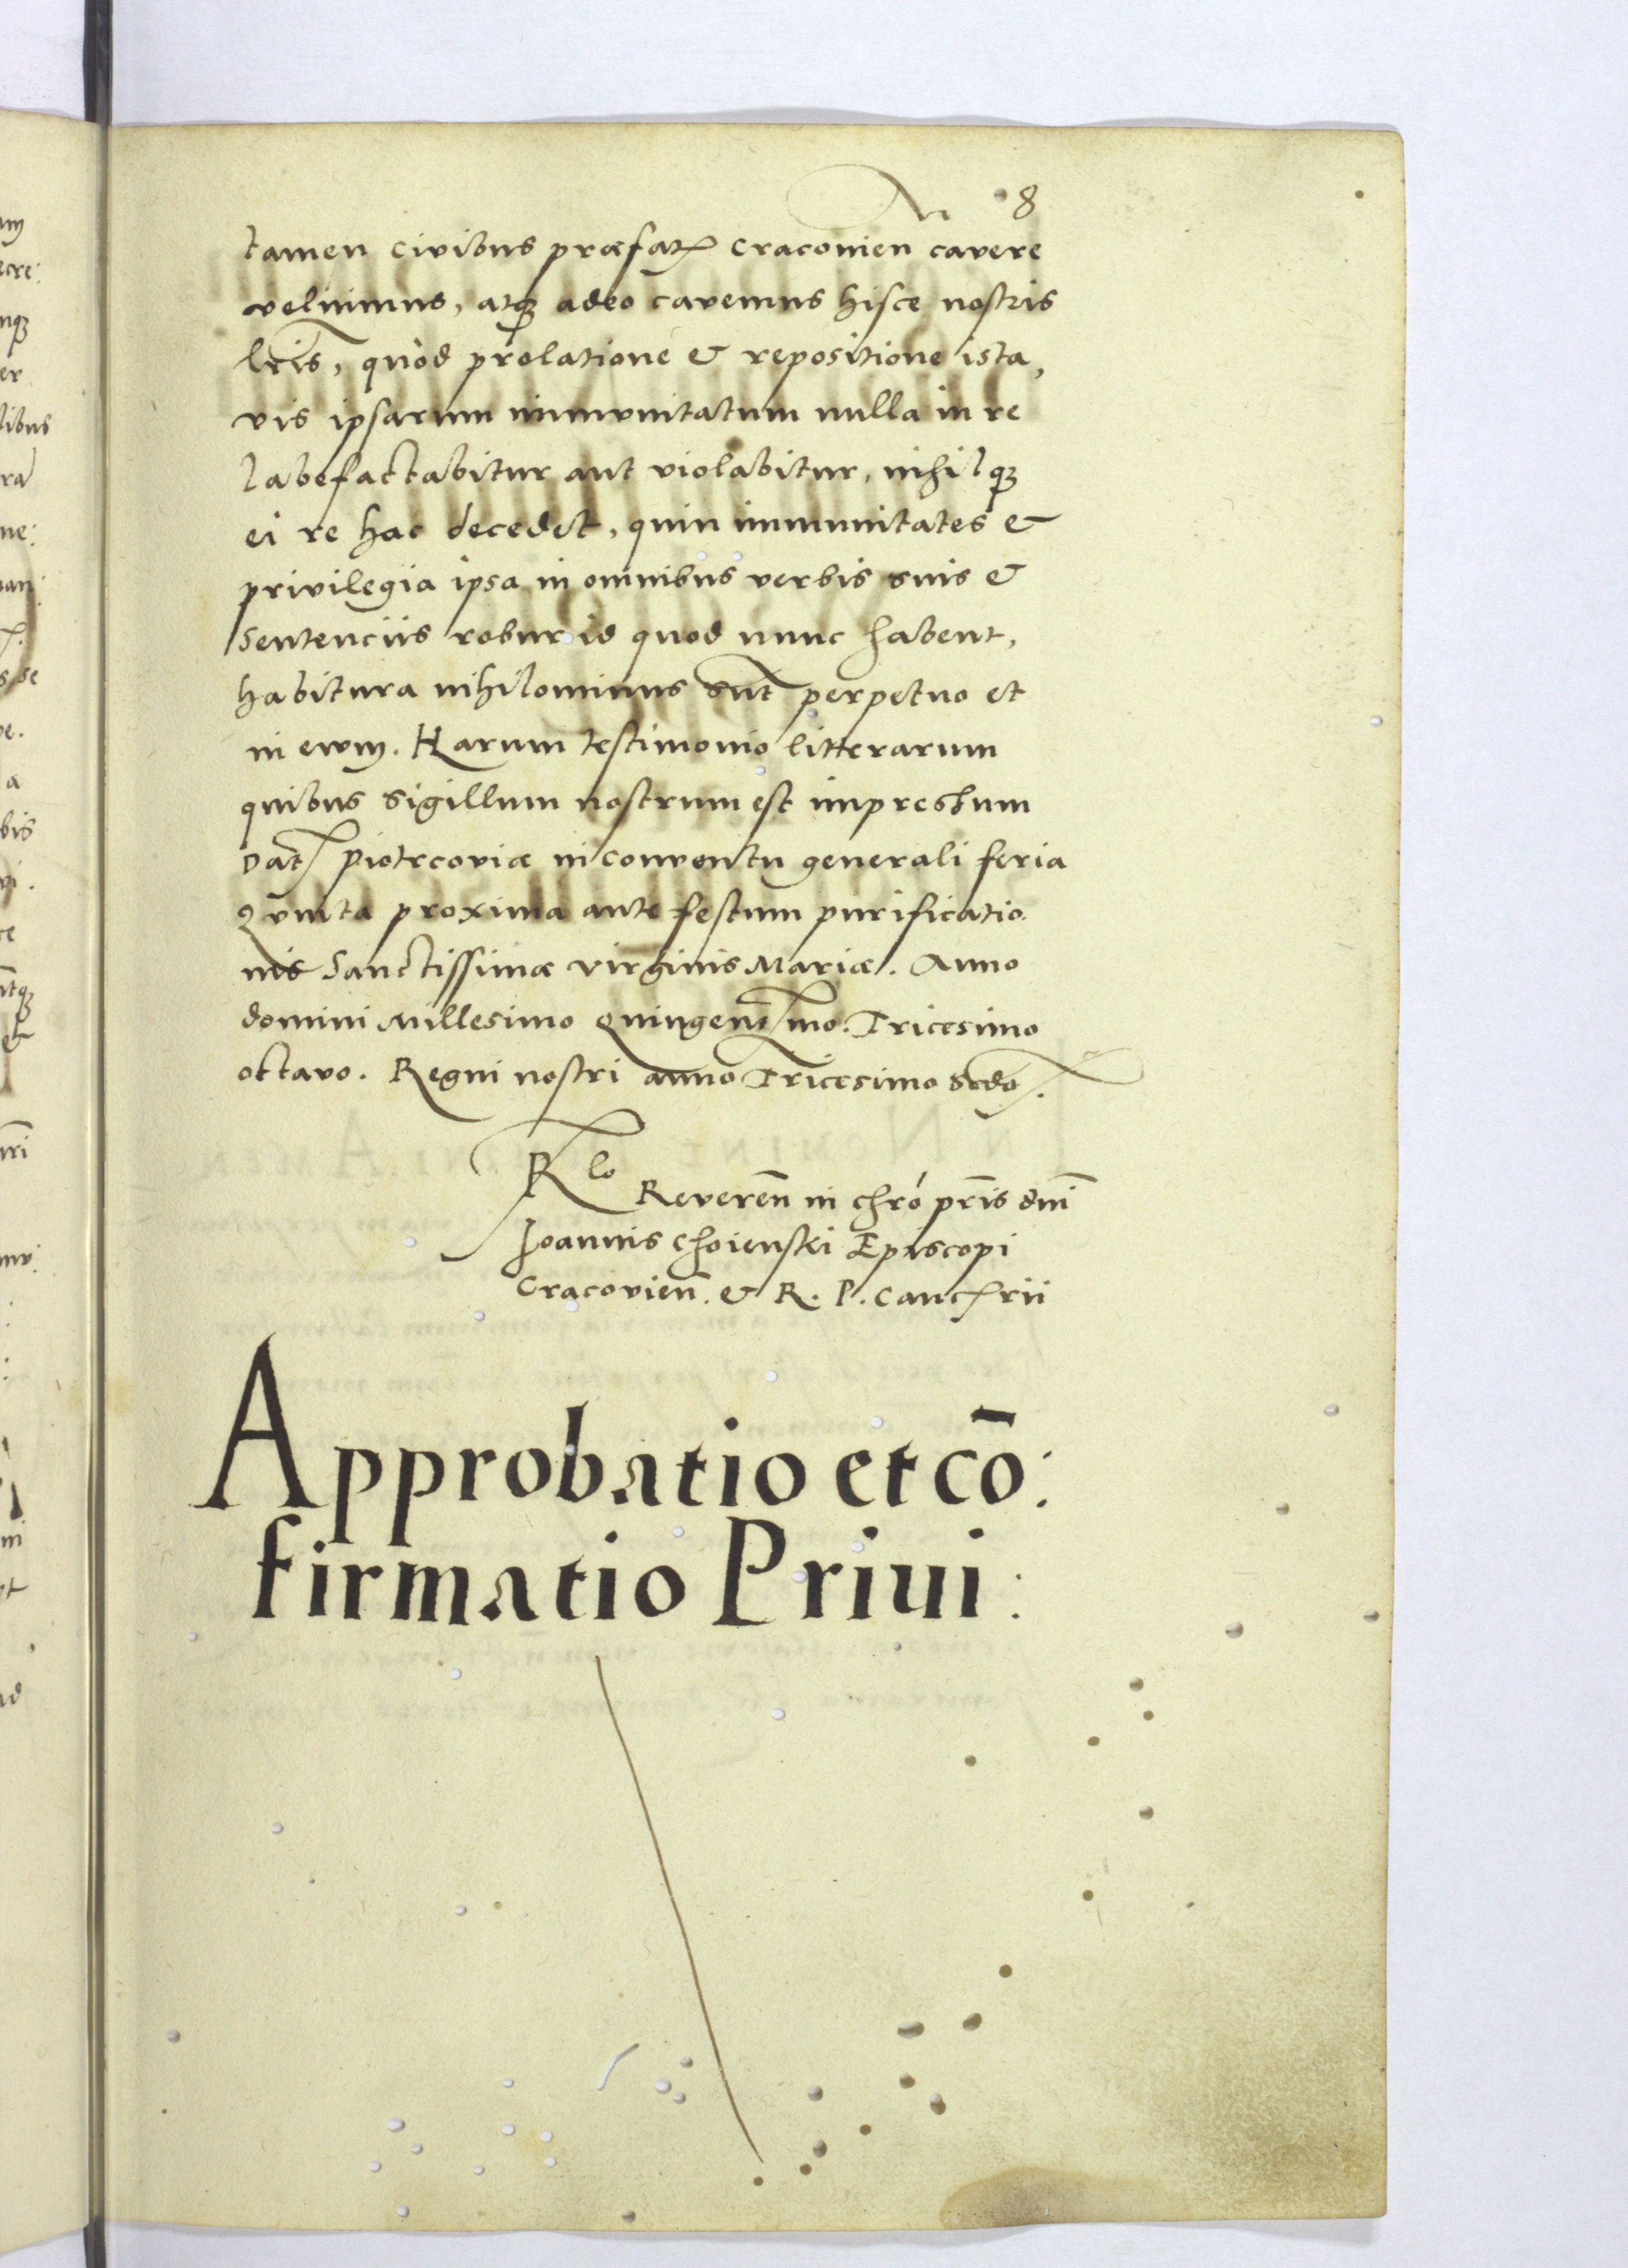 8
tamen civibus præfat craconien cavere
veluimus, atq adeo cavemus hisce nostris
lris, quòd prolatione & repositione ista,
vis ipsarum immunitatum nulla in re
labefactabitur aut violabitur, nihilq
ei re hac decedet, quin immunitates &
privilegia ipsa in omnibus verbis suis &
sentenciis robur id quod nunc habent,
habitura nihilominus sūt perpetuo et
in ewm. Harum testimonio litterarum
quibus sigillum nostrum est impressum
Dat Piotrcoviæ in conventu generali feria
Quinta proxima ante festum purificatio
nis Sanctissimæ virginis Mariæ. Anno
domini Millesimo Quingentmo. Tricesimo
octavo. Regni nostri anno Tricesimo Scdo.
Rlo
Reverēn in chró pr̄is dn̄i
Joannis Choienski Episcopi
Cracovien̄. & R. P. Cancrii
Approbatio et cō:
firmatio Priui: